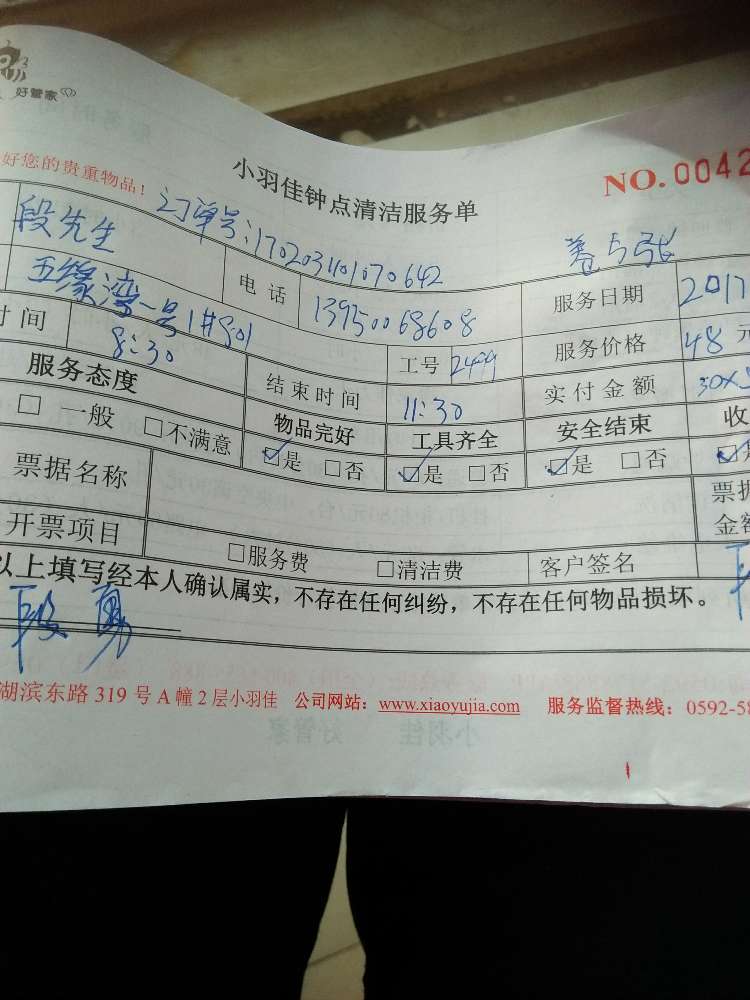 好管家
好您的贵重物品!
小羽佳钟点清洁服务单
NO. 0042
段先生 订单号:1702031101070642
电话 13950068608 服务日期 2017
五缘湾一号1#801
时间 8:30 工号 2499 服务价格 48元
服务态度 结束时间 11:30 实付金额
□ 一般 □不满意 物品完好 工具齐全 安全结束 收
☑是 □否 ☑是 □否 ☑是 □否
票据名称 票据
金额
开票项目 □服务费 □清洁费 客户签名
以上填写经本人确认属实,不存在任何纠纷,不存在任何物品损坏。
段勇
湖滨东路 319 号 A 幢 2 层小羽佳 公司网站:www.xiaoyujia.com 服务监督热线:0592-58